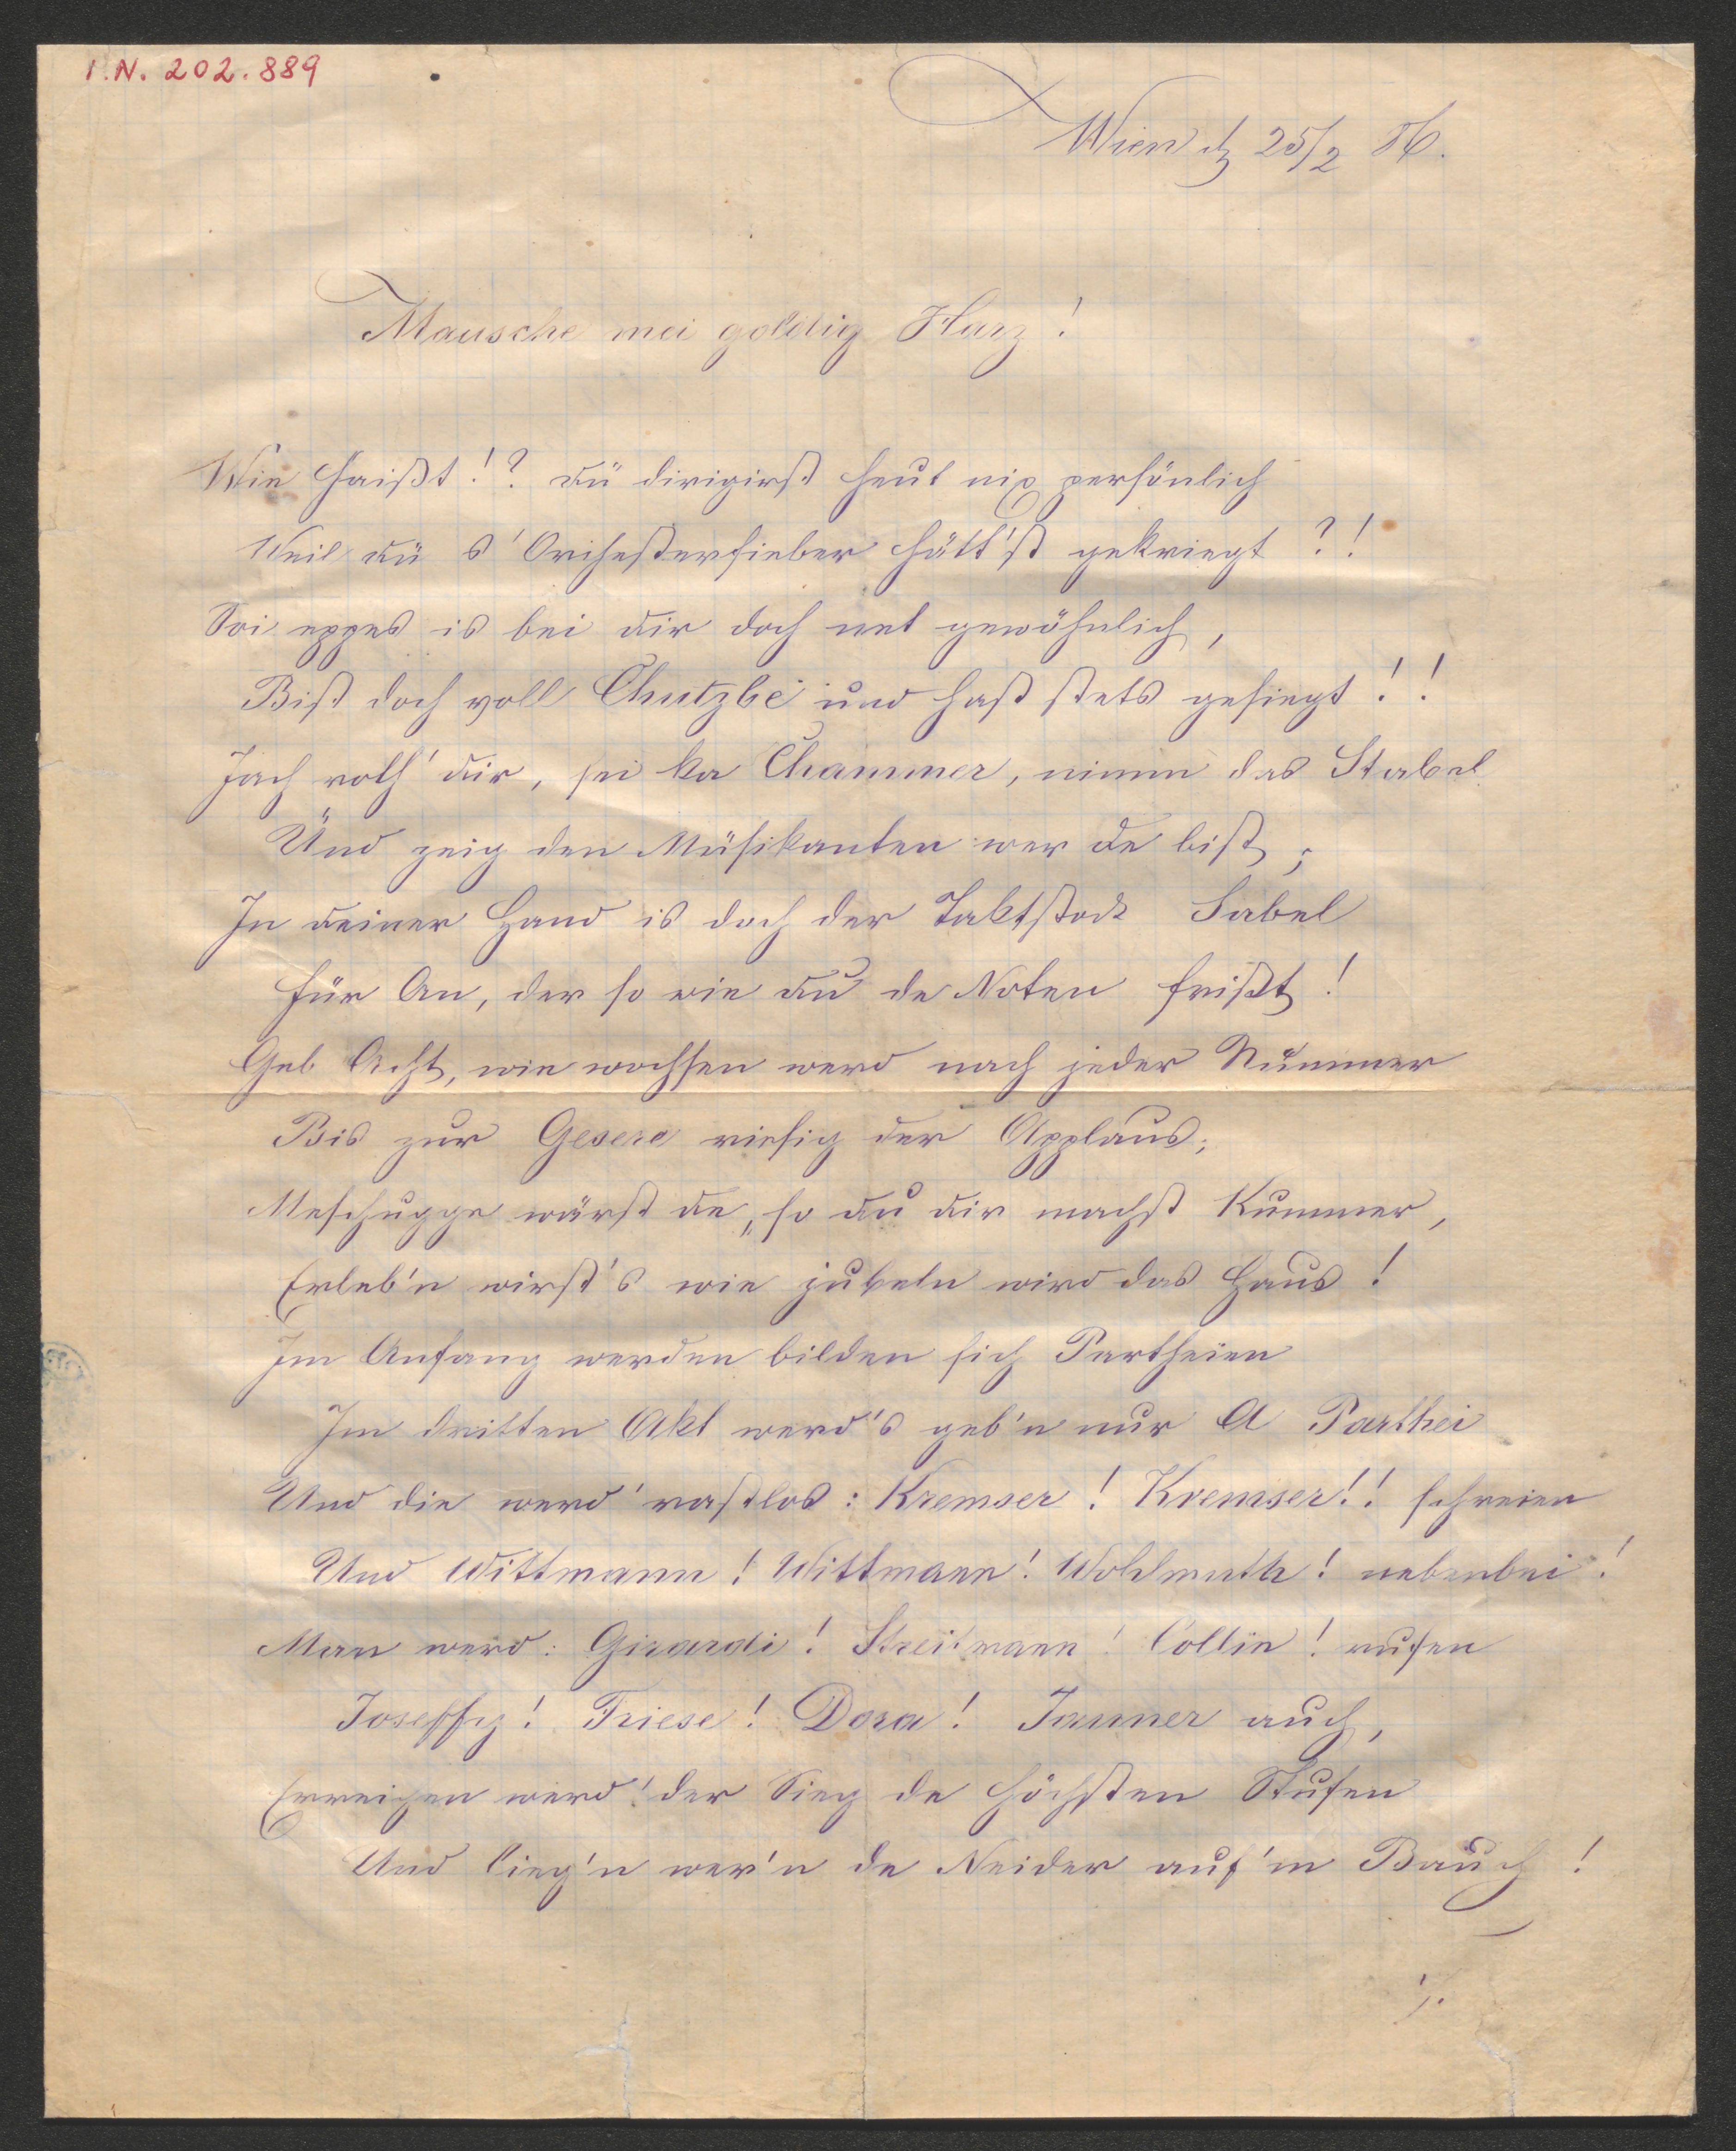 I.N. 202.889
Wien dz 25/2 86.
Mausche mei goldig Harz!
Wie haißt!? dü dirigirst heut nix persönlich
Weil dü s'Orchesterfieber hätt'st gekriegt?!
Soi eppes is bei dir doch net gewöhnlich,
Bist doch voll Chutzbe und hast stets gesiegt!!
Jach roth' dir, sei ka Chammer, nimm das Stabel
Ünd zeig den Müsikanten wer de bist;
In deiner Hand is doch der Taktstock Sabel
für An, der so wie du de Noten frißt!
Geb Acht, wie wochsen werd nach jeder Nummer
Bis zur Gesere riesig der Applaus;
Meschugge wärst de, so du dir machst Kummer,
Erleb'n wirst's wie jubeln wird das Haus!
Im Anfang werden bilden sich Partheien
Im dritten Akt werd's geb'n nur A Parthei
Und die werd' rastlos: Kremser! Kremser!! schreien
Und Wittmann! Wittmann! Wohlmuth! nebenbei!
Man werd: Girardi! Streitmann! Collin! rufen
Joseffy! Friese! Dora! Jauner auch,
Erreichen werd' der Sieg de höchsten Stufen
Und lieg'n wer'n de Neider auf'm Bauch!